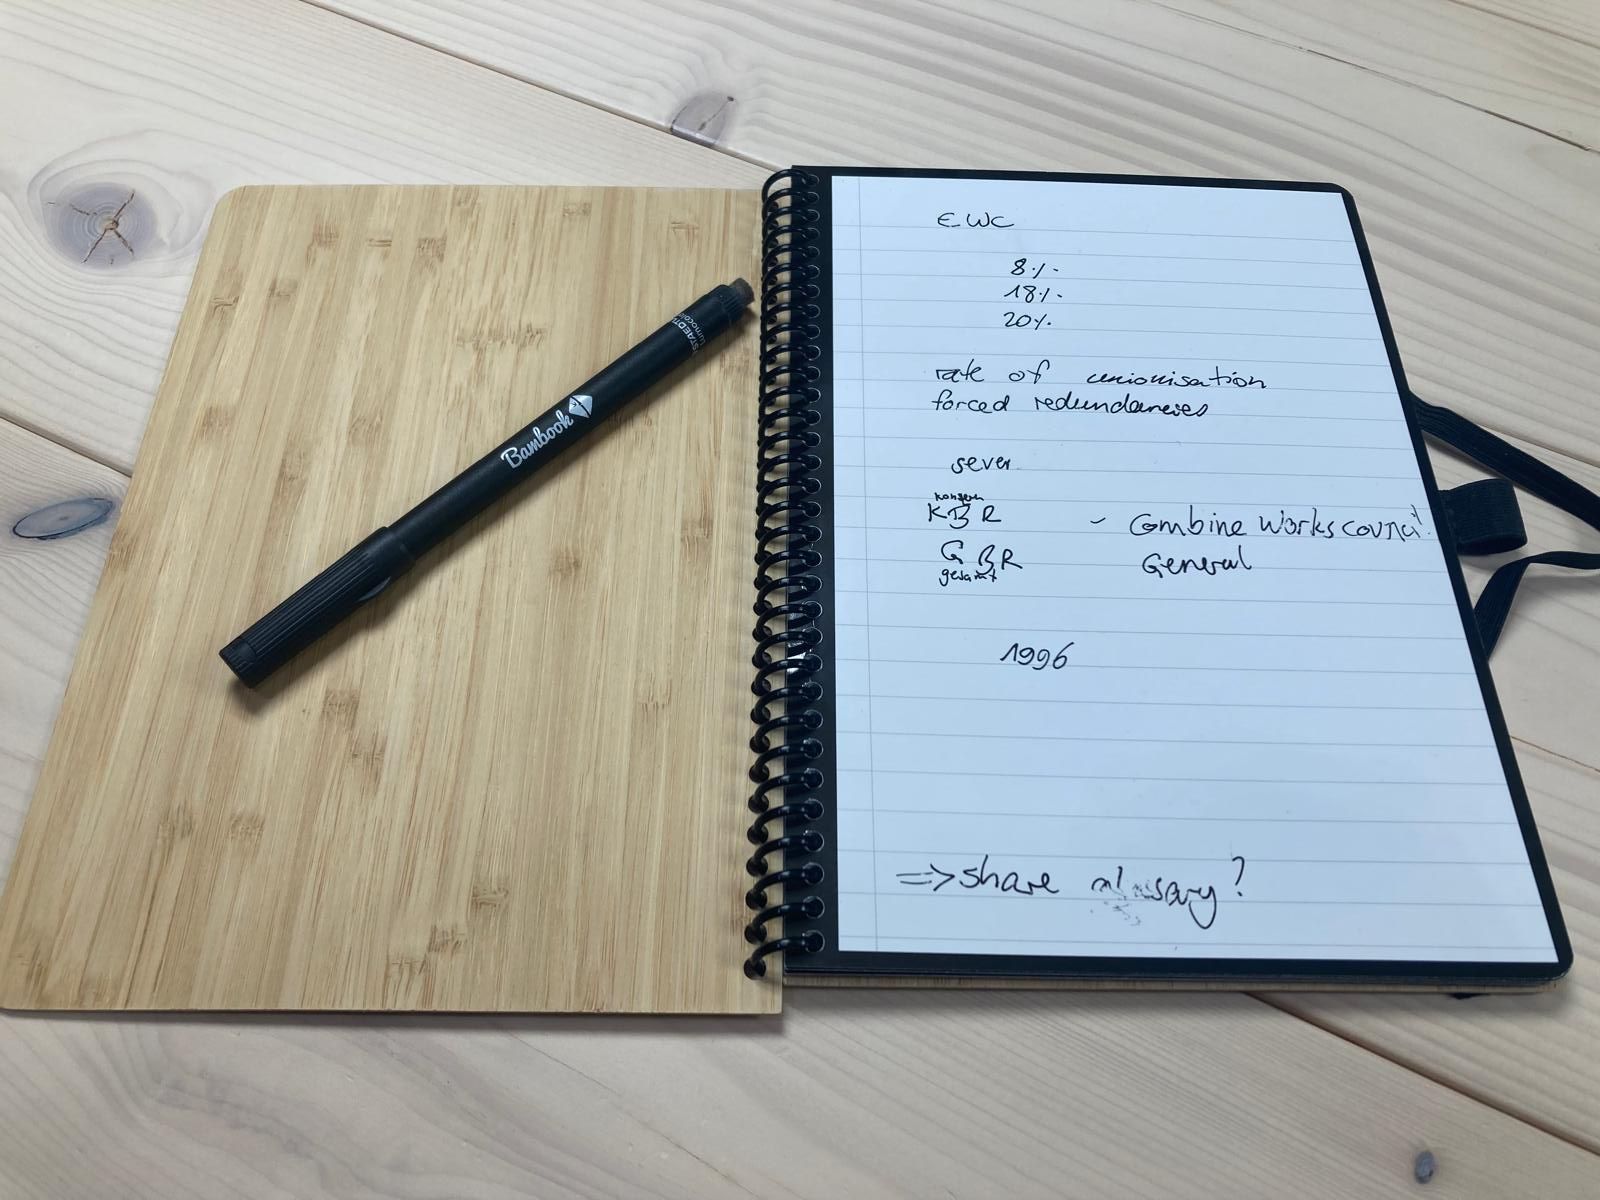 STAEDTL
Lumocolo
Bambook
EWC
8%
18%
20%
rate of unionisation
forced redundancies
sever
konzern
KBR - Combine Works council
GBR General
gesamt
1996
=> share ?